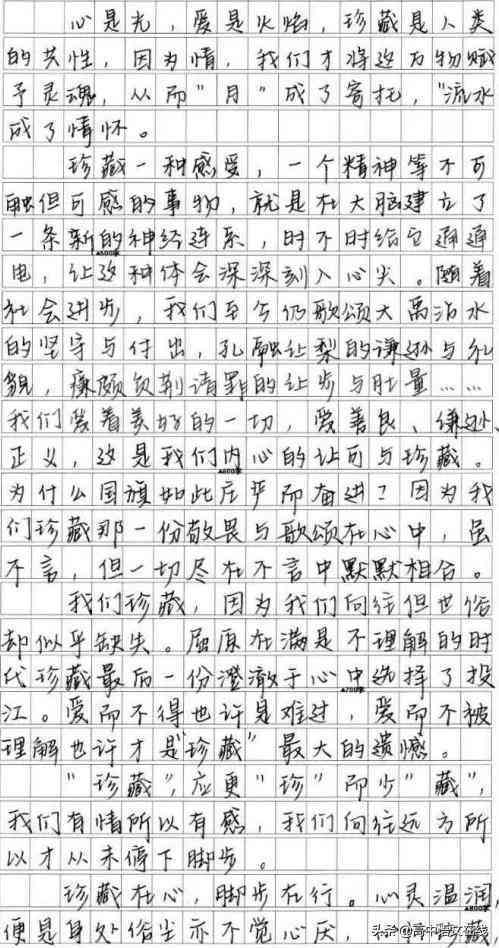 心是光，爱是火焰，珍藏是人类
的共性，因为情，我们才将这万物赋
予灵魂，从而"月"成了寄托，"流水
成了情怀。
珍藏一种感受，一个精神等不可
触但可感的事物，就是在大脑建立了
一条新的神经连系，时不时给它通通
电，让这种体会深深刻入心尖。随着
社会进步，我们至今仍歌颂大禹治水
的坚守与付出，孔融让梨的谦逊与礼
貌，廉颇负荆请罪的让步与肚量……
我们爱着美好的一切，爱善良、谦逊、
正义，这是我们内心的认可与珍藏。
为什么国旗如此庄严而奋进？因为我
们珍藏那一份敬畏与歌颂在心中，虽
不言，但一切尽在不言中默默相合。
我们珍藏，因为我们向往但世俗
却似乎缺失。屈原在满是不理解的时
代珍藏最后一份澄澈于心中选择了投
江。爱而不得也许是难过，爱而不被
理解也许才是"珍藏"最大的遗憾。
"珍藏"，应更"珍"而少"藏"，
我们有情所以有感，我们向往远方所
以才从未停下脚步。
珍藏在心，脚步在行。心灵温润，
便是身处俗尘亦不觉心厌，
头条@高中语文在线